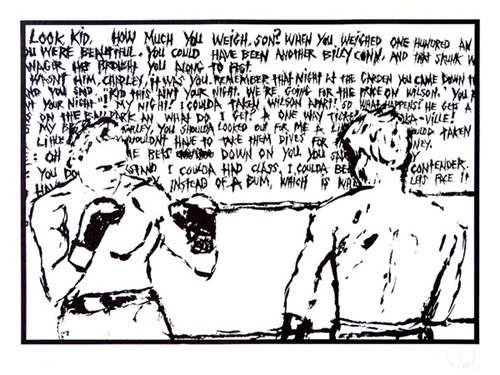 LOOK, KID, HOW MUCH YOU WEIGH, SON? WHEN YOU WEIGHED ONE HUNDRED AN
YOU WERE BEAUTIFUL. YOU COULD HAVE BEEN ANOTHER BILLY CONN, AND THAT SKUNK W
NAGER HE BROUGHT YOU ALONG TO FAST.
WASNT HIM, CHARLEY, IT WAS YOU. REMEMBER THAT NIGHT AT THE GARDEN YOU CAME DOWN T
AND YOU SAID "KID THIS AIN'T YOUR NIGHT. WE'RE GOING FOR THE PRICE ON WILSON." YOU R
T YOUR NIGHT"! MY NIGHT! I COULDA TAKEN WILSON APART! SO WHAT HAPPENS? HE GETS A
S ON THE BALLPARK AN WHAT DO I GET? A ONE WAY TICKE KA-VILLE!
MY B RLEY, YOU SHOULDA LOOKED OUT FOR ME A LI ULDA TAKEN
LITTLE WOULDN'T HAVE TO TAKE THEM DIVES FOR NEY.
OH ME BETS DOWN ON YOU. YOU SA
YOU DO STAND I COULDA HAD CLASS. I COULDA BE CONTENDER.
HAVE INSTEAD OF A BUM, WHICH IS WHA LETS FACE IT